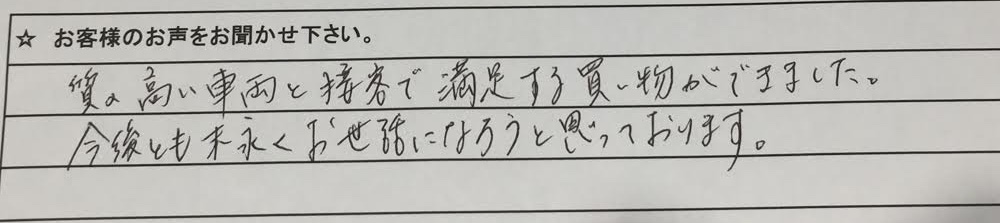 ☆ お客様のお声をお聞かせ下さい。
質の高い車両と接客で満足する買い物ができました。
今後とも末永くお世話になろうと思っております。